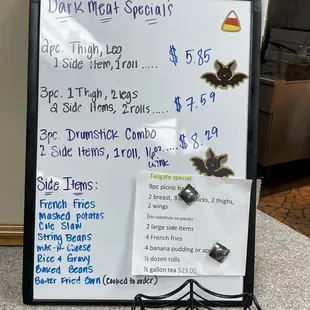 Dark Meat Specials
2pc. Thigh, Leg
1 Side Item, 1 roll ..... $5.85
3pc. 1 Thigh, 2 legs
2 Side Items, 2 rolls..... $7.59
3pc. Drumstick Combo
2 Side Items, 1 roll, 16oz. .... $8.29
Drink
Side Items:
French Fries
Mashed potatos
Cole Slaw
String Beans
Mac-n-Cheese
Rice & Gravy
Baked Beans
Batter Fried Corn (Cooked to order)
Tailgate special
9pc picnic
2 breast, 2 thighs,
2 wings
(No substitute on pieces)
2 large side items
4 French fries
4 banana pudding or
½ dozen rolls
½ gallon tea $29.00